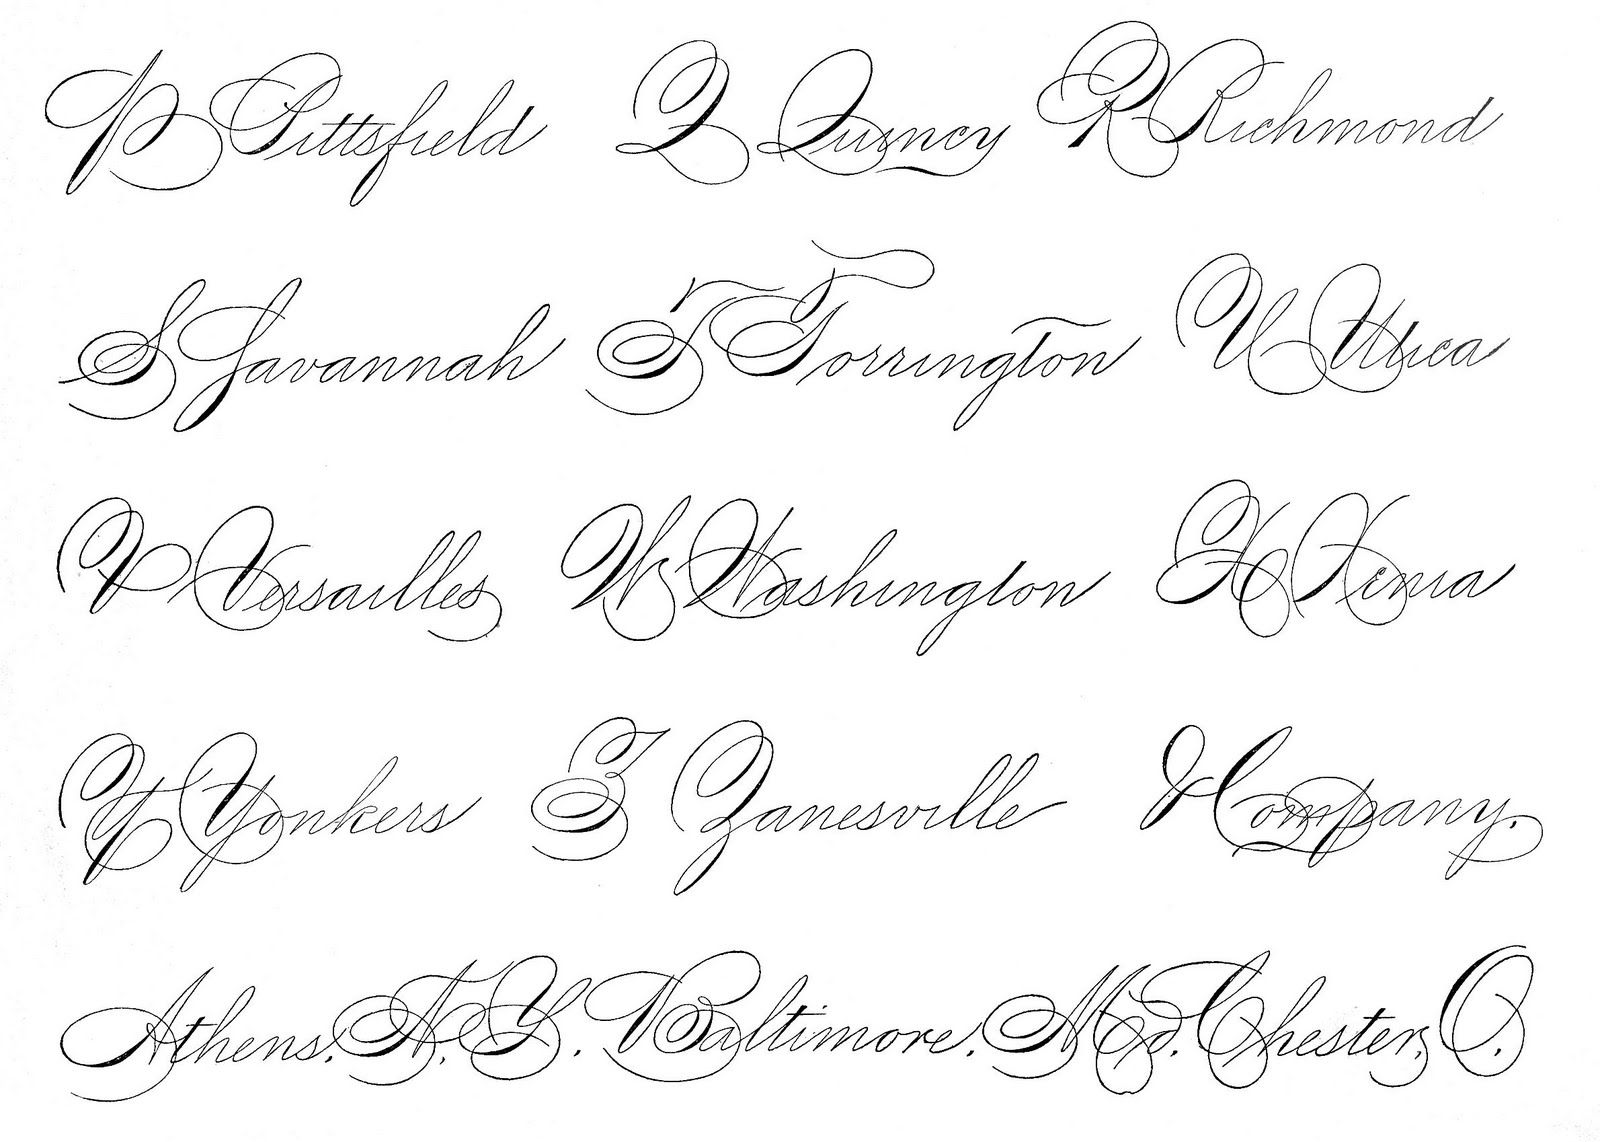 P Pittsfield Q Quincy R Richmond
S Savannah T Torrington U Utica
V Versailles W Washington X Xenia
Y Yonkers Z Zanesville & Company.
Athens, N. Y. Baltimore, Md. Chester, O.